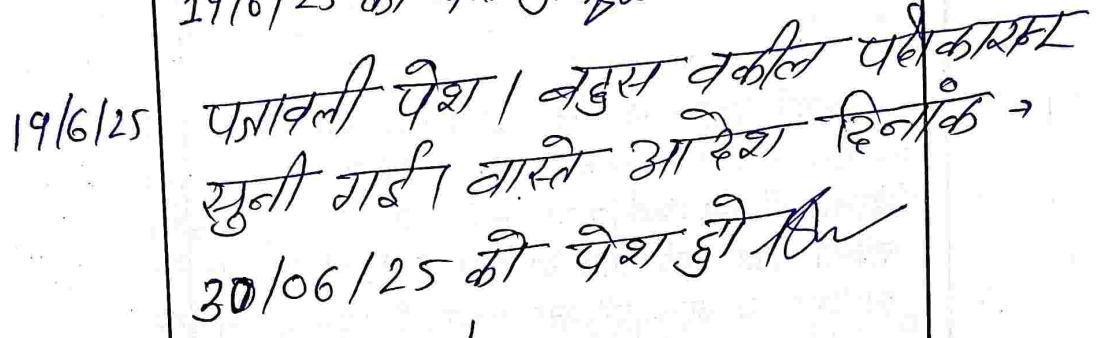 19/6/25 को
19/6/25 पत्रावली पेश। बहस वकील पक्षकारान
सुनी गई। वास्ते आदेश दिनांक →
30/06/25 को पेश हो